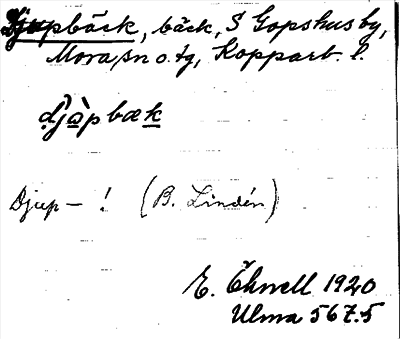 Djupbäck, bäck, S Gopshus by,
Mora sn o. tg, Kopparb. l.
djàpbæk
Djup- ! (B. Lindén)
E. Öhrvell 1920
Ulma 567:5